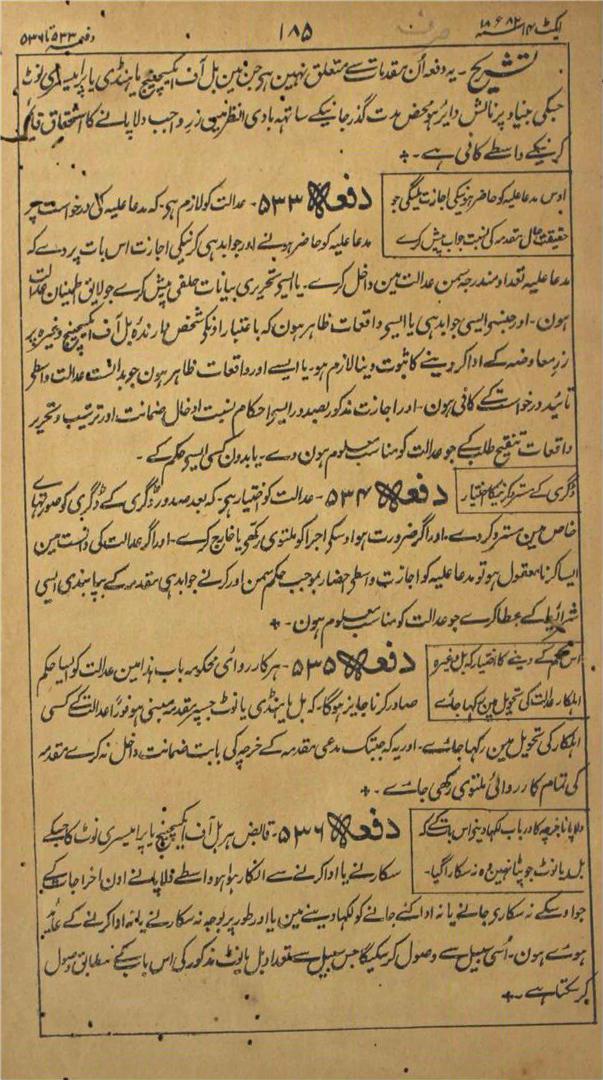 ایکٹ ۱۴ ۱۸۸۲ء
۱۸۵
دفعہ ۵۳۳ تا ۵۳۶
تشریح - یہ دفعہ اُن مقدمات سے متعلق نہین ہی جن مین بل آف ایکسچینج یا ہنڈی یا پرامیسری نوٹ
جسکی بنیاد پر نالش دایر ہو محض مدت گذر جانیکے ساتھ بادی النظر مین زر واجب دلا پانے کا استحقاق قائم
کرنیکے واسطے کافی ہے -
اوس مدعا علیہ کو حاضر ہونیکی اجازت ملیگی جو
حقیقت حال مقدمہ کی نسبت جواب پیش کرے
دفعہ ۵۳۳ - عدالت کو لازم ہی کہ مدعا علیہ کی درخواست پر
مدعا علیہ کو حاضر ہونے اور جوابدہی کرنیکی اجازت اس بات پر دے کہ
مدعا علیہ تعداد مندرجہ سمن عدالت مین داخل کرے - یا ایسے تحریری بیانات حلفی پیش کرے جو لایق اطمینان عدالت
ہون - اور جنسے ایسی جوابدہی یا ایسے واقعات ظاہر ہون کہ باعتبار اونکے شخص دارندہ بل آف ایکسچینج وغیرہ پر
زر معاوضہ کے ادا کر دینے کا ثبوت دینا لازم ہو - یا ایسے اور واقعات ظاہر ہون جو بدانست عدالت واسطے
تائید درخواست کے کافی ہون - اور اجازت مذکور بصدور ایسے احکام نسبت ادخال ضمانت اور ترتیب و تحریر
واقعات تنقیح طلب کے جو عدالت کو مناسب معلوم ہون دے - یا بدون کسی ایسے حکم کے -
ڈگری کے مسترد کرنیکا اختیار
دفعہ ۵۳۴ - عدالت کو اختیار ہی - کہ بعد صدور ڈگری کے ڈگری کو صورتہاے
خاص مین مسترد کر دے - اور اگر ضرورت ہو اوسکی اجرا کو ملتوی رکھے یا خارج کرے - اور اگر عدالت کی دانست مین
ایسا کرنا معقول ہو تو مدعا علیہ کو اجازت واسطے احضار بموجب حکم سمن اور کرنے جوابدہی مقدمہ کے بپابندی ایسی
شرائط کے عطا کرے جو عدالت کو مناسب معلوم ہون -
اس حکم کے دینے کا اختیار کہ بل وغیرہ
اہلکار عدالت کی تحویل مین رکھا جائے
دفعہ ۵۳۵ - ہر کارروائی محکومہ باب ہذا مین عدالت کو ایسا حکم
صادر کرنا جایز ہوگا - کہ بل یا ہنڈی یا نوٹ جسپر مقدمہ مبنی ہو فوراً عدالت کے کسی
اہلکار کی تحویل مین رکھا جائے - اور یہ کہ جبتک مدعی مقدمہ کے خرچہ کی بابت ضمانت داخل نہ کرے مقدمہ
کی تمام کارروائی ملتوی رکھی جائے -
دلاپانا خرچہ کا درباب لکھا دینے اس بات کے کہ
بل یا نوٹ جو پٹا نہین وہ نہ سکارا گیا -
دفعہ ۵۳۶ - قابض ہر بل آف ایکسچینج یا پرامیسری نوٹ کا جسکے
سکارنے یا ادا کرنے سے انکار ہوا ہو واسطے دلا پانے اون اخراجات کے
جو اوسکے نہ سکاری جانے یا نہ ادا کئے جانے کو لکھا دینے مین یا اور طور پر بوجہ نہ سکارنے یا نہ ادا کرنے کے عائد
ہوے ہون - اُسی سبیل سے وصول کر سکیگا جس سبیل سے تعداد بل یا نوٹ مذکور کی اس باب کے مطابق وصول
کر سکتا ہے -